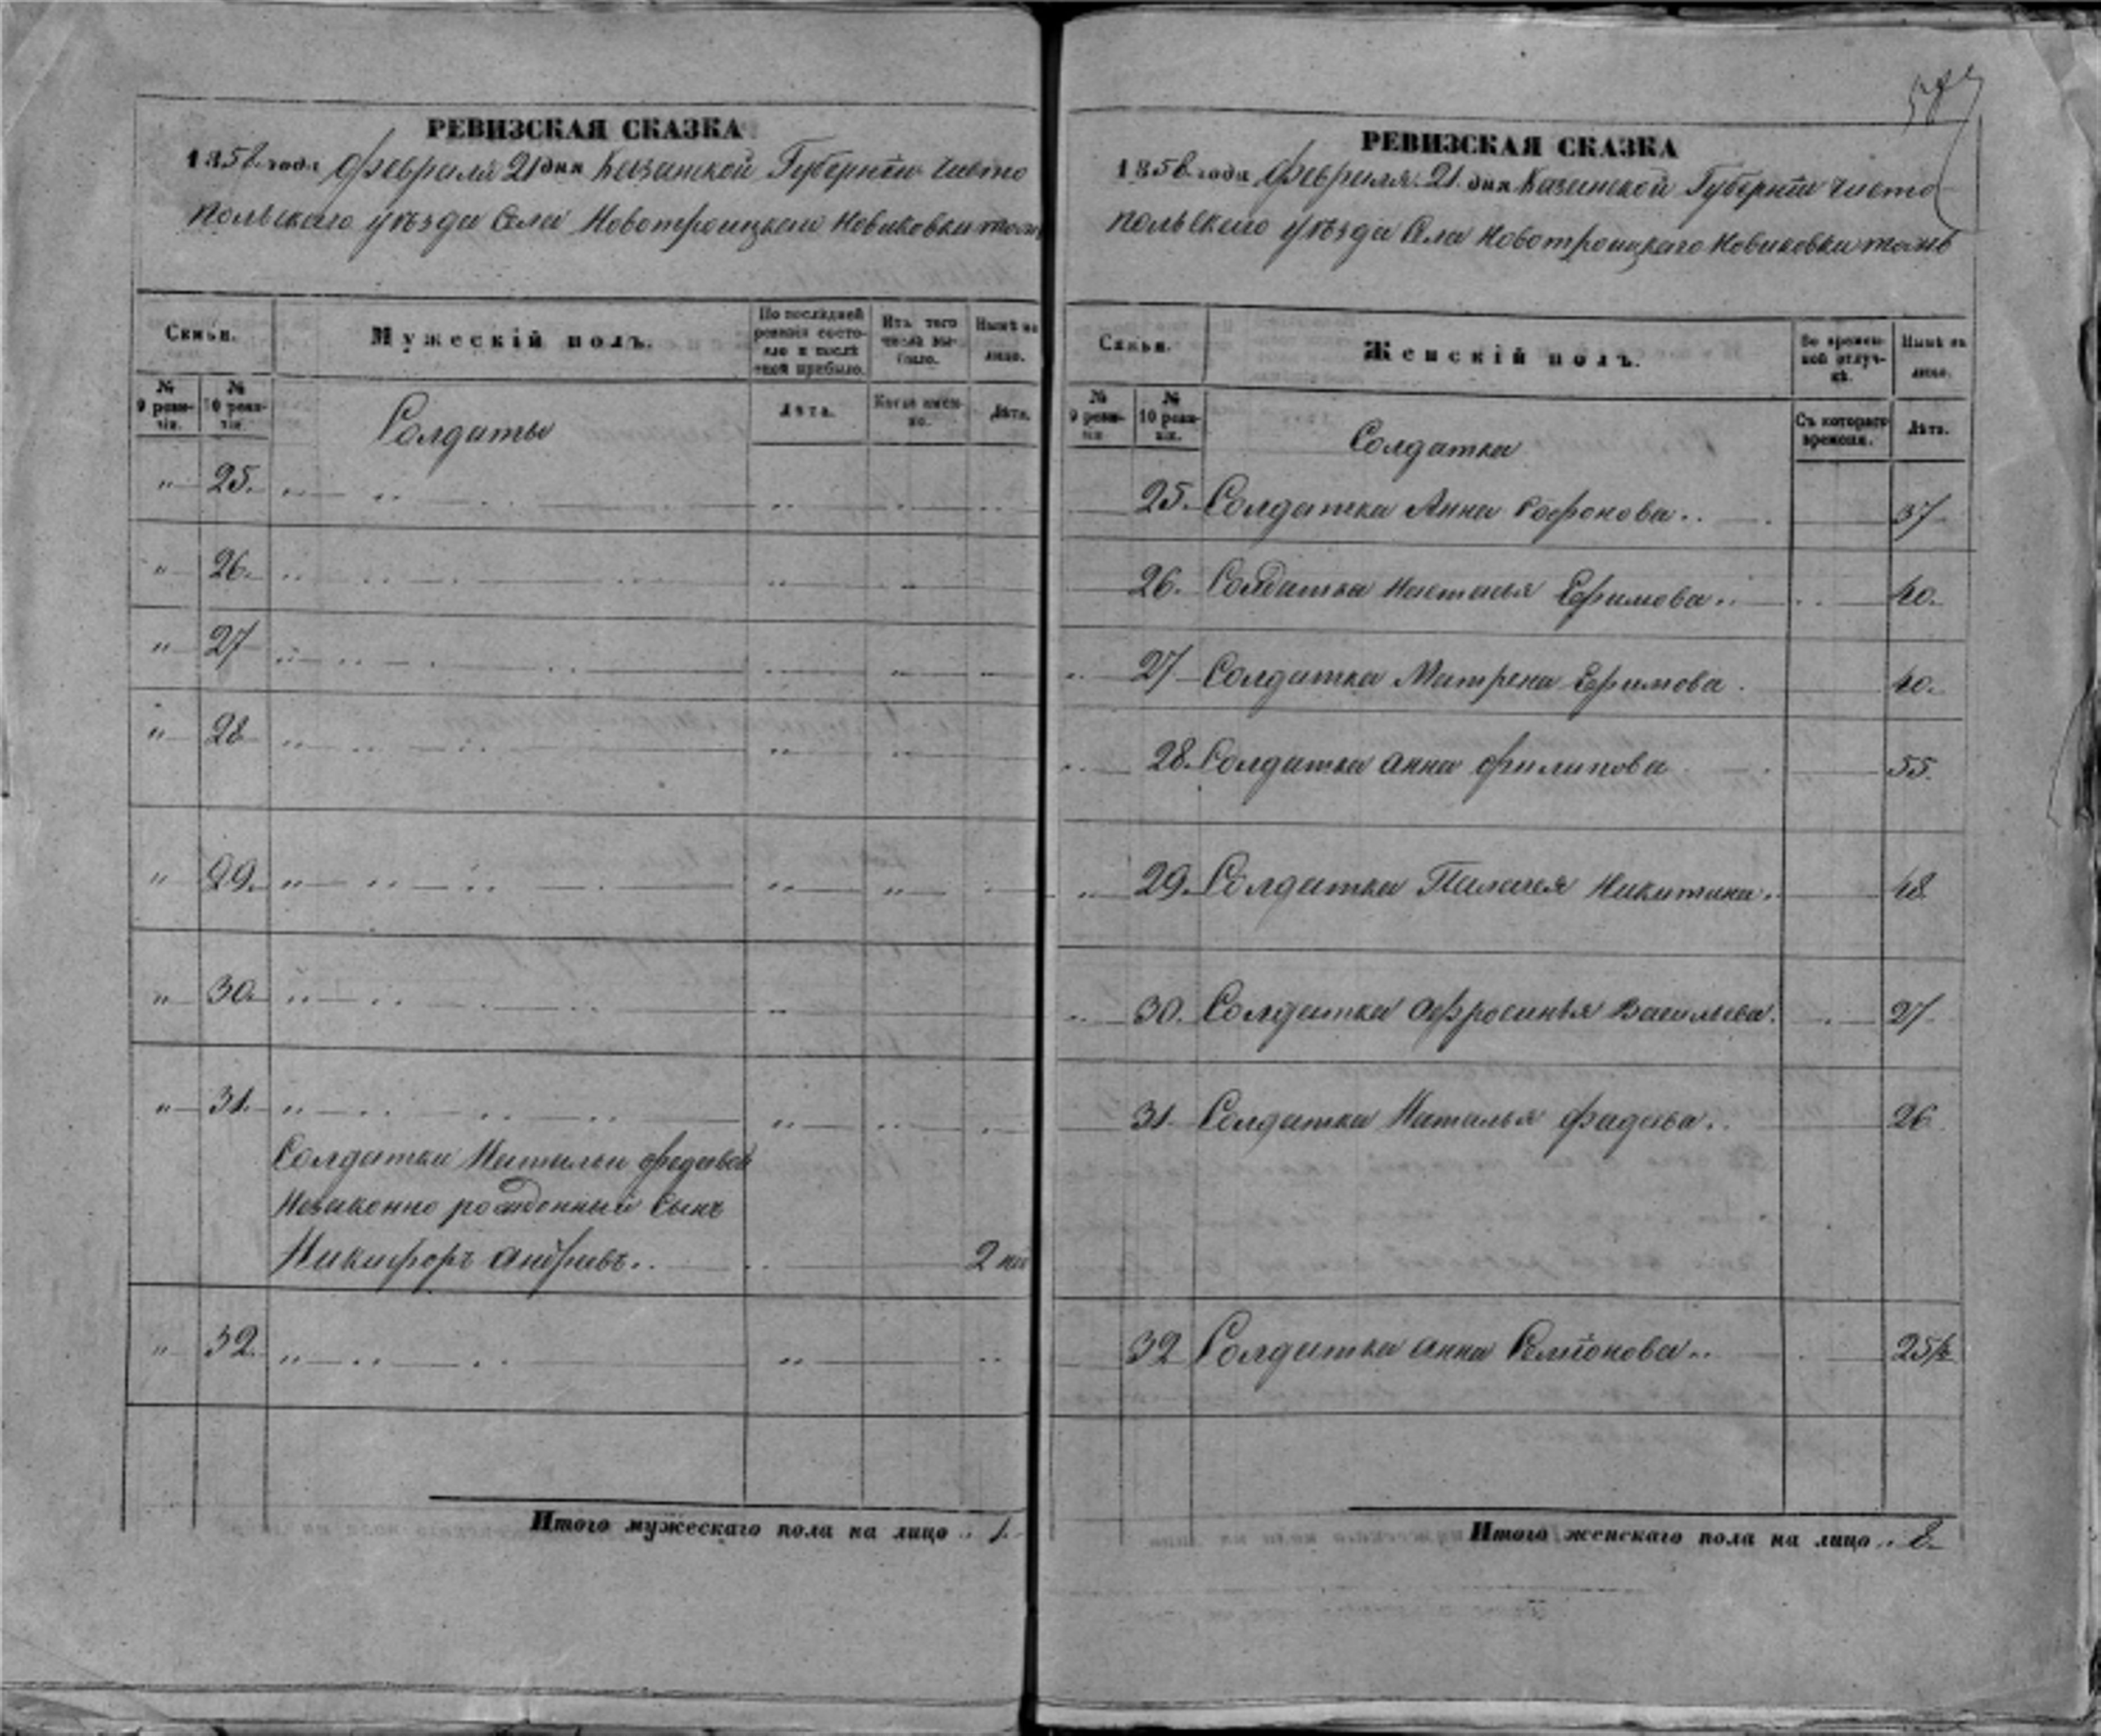 РЕВИЗСКАЯ СКАЗКА
1858 года Февраля 21 дня Казанской Губерніи Чисто
польскаго уѣзда Села Новотроицкаго Новиковки тожъ
Семьи.
Мужескій полъ.
По послѣдней ревизіи состояло и послѣ твой прибыло.
Изъ того числа выбыло.
Нынѣ на лицо.
№ 9 ревизіи.
№ 10 ревизіи.
Солдаты
Лѣта.
Когда именно.
Лѣта.
" 25.
" 26.
" 27
" 28
" 29.
" 30.
" 31.
Солдатки Натальи Фадѣевой
Незаконно рожденный сынъ
Никифоръ Андреевъ 2 не
" 32.
Итого мужескаго пола на лицо 1.
РЕВИЗСКАЯ СКАЗКА
1858 года Февраля 21 дня Казанской Губерніи Чисто
польскаго уѣзда Села Новотроицкаго Новиковки тожъ
Семьи.
Женскій полъ.
Во временной отлучкѣ.
Нынѣ на лицо.
№ 9 ревизіи.
№ 10 ревизіи.
Солдатка
Съ котораго времени.
Лѣта.
25. Солдатка Анна Софонова 37
26. Солдатка Настасья Ефимова 40.
27 Солдатка Матрена Ефимова 40.
28. Солдатка Анна Филипова 55.
29. Солдатка Палагея Никитина 48
30. Солдатка Афросинья Васильева 27
31 Солдатка Наталья Фадѣева 26
32 Солдатка Анна Семіонова 25½
Итого женскаго пола на лицо 8.